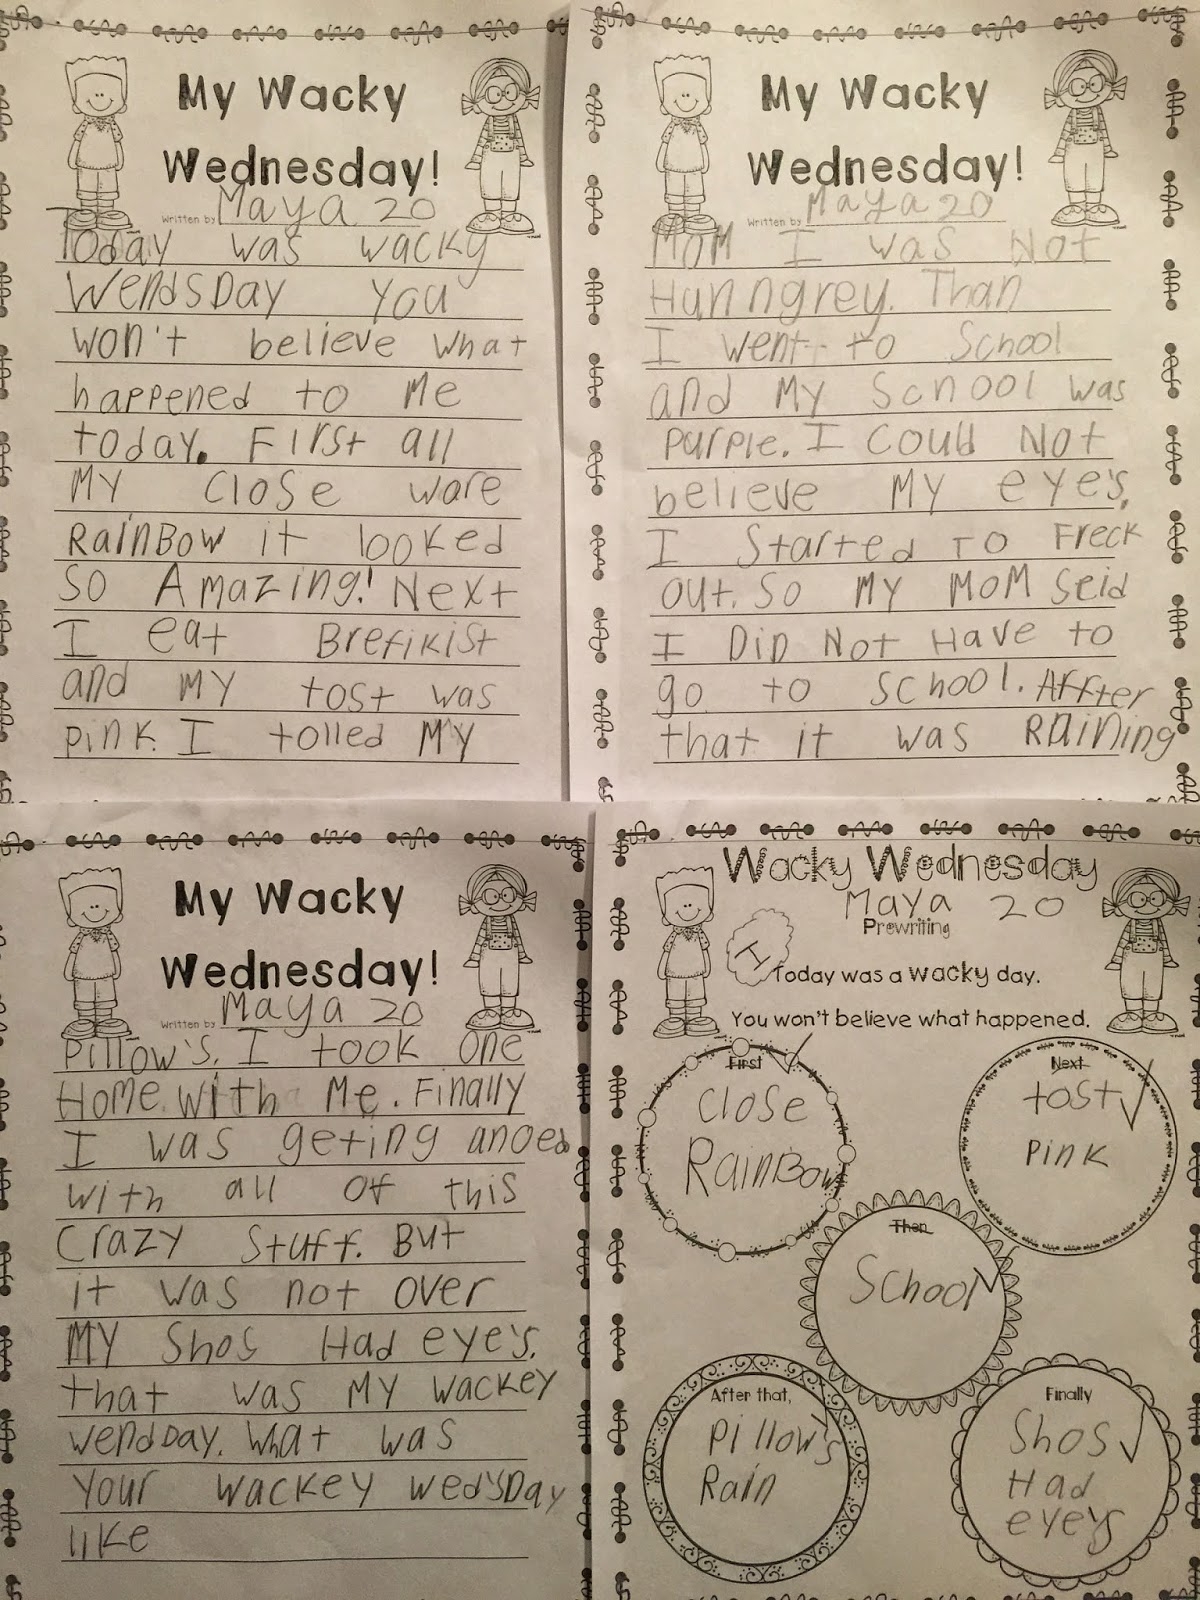 My Wacky
Wednesday!
Written by Maya 20
Today was wacky
WendsDay you
won't believe what
happened to Me
today. First all
MY Close ware
RainBow it looked
So Amazing! Next
I eat Brefikist
and MY tost was
pink. I tolled MY
My Wacky
Wednesday!
Written by Maya 20
MoM I was Not
Hunngrey. Than
I went to School
and My School was
purple. I Could Not
believe MY eye's.
I Started To Freck
out. So MY MoM Seid
I DiD Not Have to
go to School. Affter
that it was Raining
My Wacky
Wednesday!
Written by Maya 20
Pillow's. I took one
Home With Me. Finally
I was geting anoed
with all of this
Crazy Stuff. But
it was not over
MY Shos Had eye's.
that was MY wackey
wendDay. What was
Your wackey wed'sDay
like
Wacky Wednesday
Maya 20
Prewriting
I
Today was a wacky day.
You won't believe what happened.
First
Close
RainBow
Next
tost
Pink
Then
School
After that,
Pillow's
Rain
Finally
Shos
Had
eye's